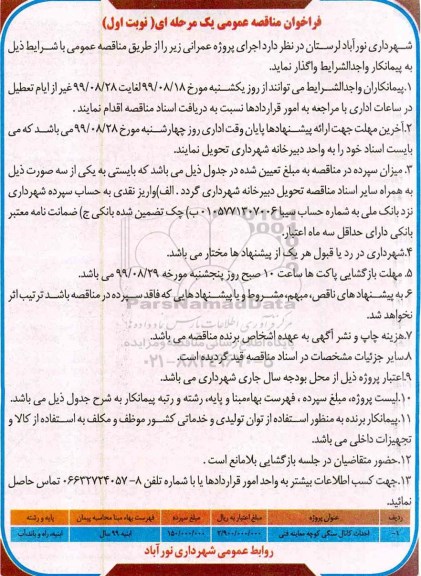 فراخوان مناقصه عمومی یک مرحله ای( نوبت اول)
شهرداری نورآباد لرستان در نظر دارد اجرای پروژه عمرانی زیر را از طریق مناقصه عمومی با شرایط ذیل
به پیمانکار واجدالشرایط واگذار نماید.
۱.پیمانکاران واجدالشرایط می توانند از روز یکشنبه مورخ ۹۹/۰۸/۱۸ لغایت ۹۹/۰۸/۲۸ غیر از ایام تعطیل
در ساعات اداری با مراجعه به امور قراردادها نسبت به دریافت اسناد مناقصه اقدام نمایند .
۲.آخرین مهلت جهت ارائه پیشنهادها پایان وقت اداری روز چهارشنبه مورخ ۹۹/۰۸/۲۸ می باشد که می
بایست اسناد خود را به واحد دبیرخانه شهرداری تحویل نمایند.
۳. میزان سپرده در مناقصه به مبلغ تعیین شده در جدول ذیل می باشد که بایستی به یکی از سه صورت ذیل
به همراه سایر اسناد مناقصه تحویل دبیرخانه شهرداری گردد . الف)واریز نقدی به حساب سپرده شهرداری
نزد بانک ملی به شماره حساب سیبا ۰۱۰۵۷۷۱۳۰۷۰۰۶ ب) چک تضمین شده بانکی ج) ضمانت نامه معتبر
بانکی دارای حداقل سه ماه اعتبار.
۴.شهرداری در رد یا قبول هر یک از پیشنهاد ها مختار می باشد.
۵. مهلت بازگشایی پاکت ها ساعت ۱۰ صبح روز پنجشنبه مورخه ۹۹/۰۸/۲۹ می باشد.
۶.به پیشنهادهای ناقص، مبهم، مشروط و یا پیشنهادهایی که فاقد سپرده در مناقصه باشد ترتیب اثر
نخواهد شد.
ParsNamadData
۷.هزینه چاپ و نشر آگهی به عهده اشخاص برنده مناقصه می باشد.
۸.سایر جزئیات مشخصات در اسناد مناقصه قید گردیده است.
۹.اعتبار پروژه ذیل از محل بودجه سال جاری شهرداری می باشد.
۱۰.لیست پروژه، مبلغ سپرده ، فهرست بهاءمبنا و پایه، رشته و رتبه پیمانکار به شرح جدول ذیل می باشد.
۱۱.پیمانکار برنده به منظور استفاده از توان تولیدی و خدماتی کشور موظف و مکلف به استفاده از کالا و
تجهیزات داخلی می باشد.
۱۲.حضور متقاضیان در جلسه بازگشایی بلامانع است .
۱۳.جهت کسب اطلاعات بیشتر به واحد امور قراردادها یا با شماره تلفن ۸-۰۶۶۳۲۷۲۴۰۵۷ تماس حاصل
نمائید.
ردیف عنوان پروژه مبلغ اعتبار به ریال مبلغ سپرده فهرست بهاء مبنا محاسبه پیمان پایه و رشته
۱- احداث کانال سنگی کوچه معاینه فنی ۲/۹۰۰/۰۰۰/۰۰۰ ۱۵۰/۰۰۰/۰۰۰ ابنیه ۹۹ سال ابنیه، راه و باند
روابط عمومی شهرداری نورآباد